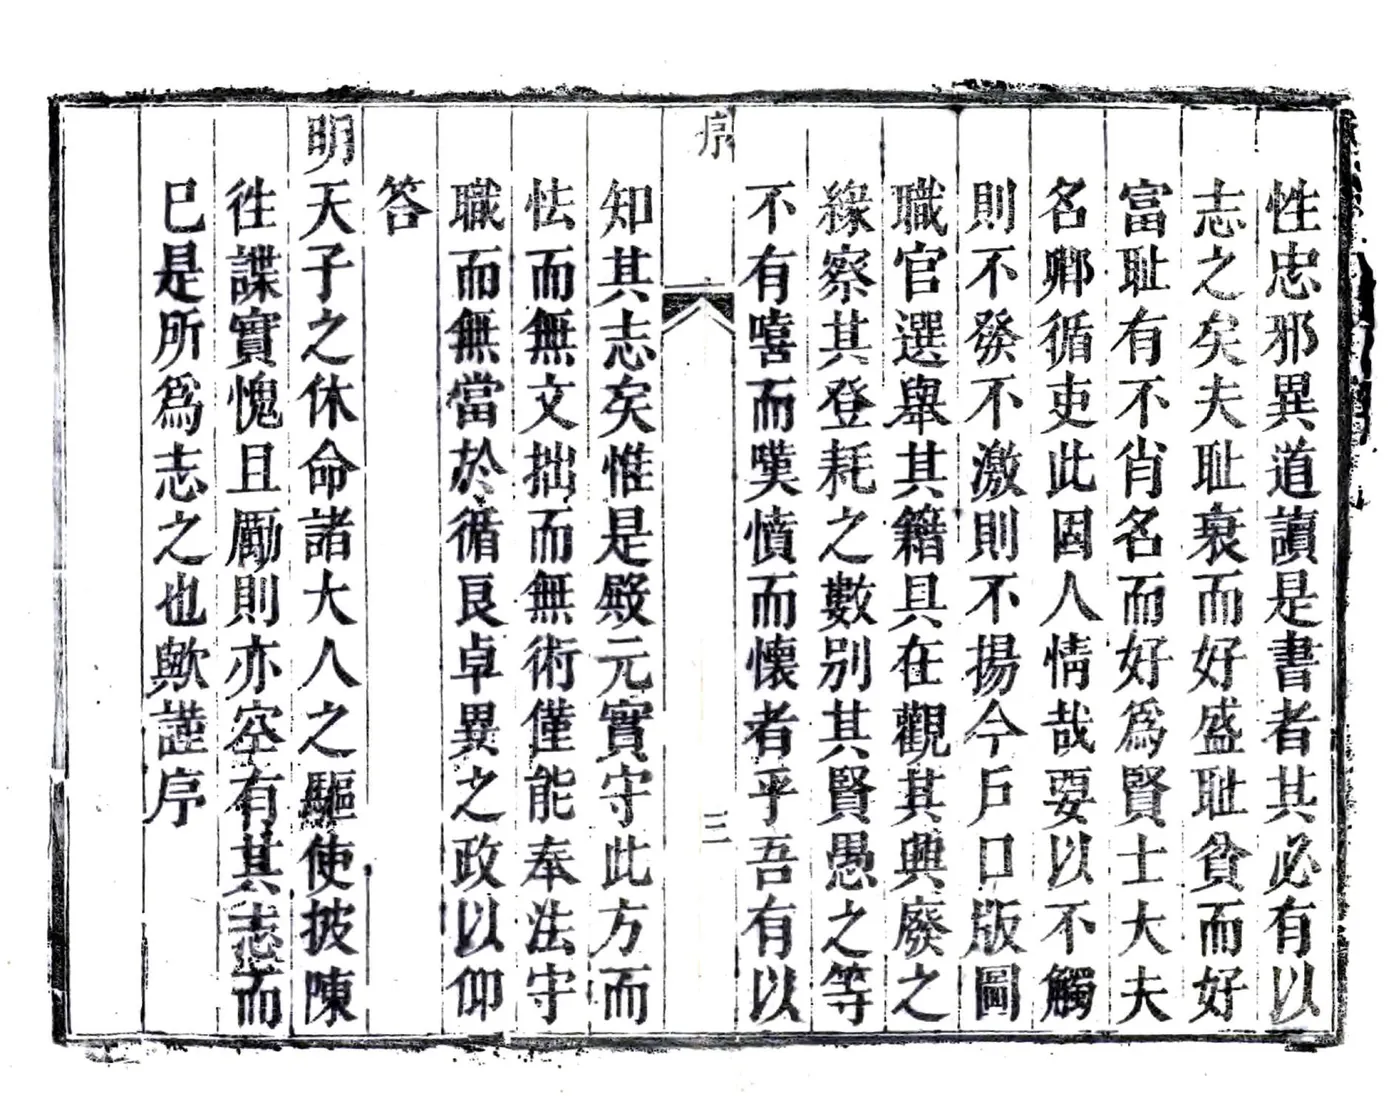 性忠邪異道讀是書者其必有以
志之矣夫耻衰而好盛耻貧而好
富耻有不肖名而好爲賢士大夫
名卿循吏此因人情哉要以不觸
則不發不激則不揚今戶口版圖
職官選舉其籍具在觀其興廢之
緣察其登耗之數別其賢愚之等
不有嘻而嘆憤而懷者乎吾有以
序
三
知其志矣惟是燬元實守此方而
怯而無文拙而無術僅能奉法守
職而無當於循良卓異之政以仰
答
明天子之休命諸大人之驅使披陳
徃諜實愧且勵則亦空有其志而
巳是所爲志之也歟謹序